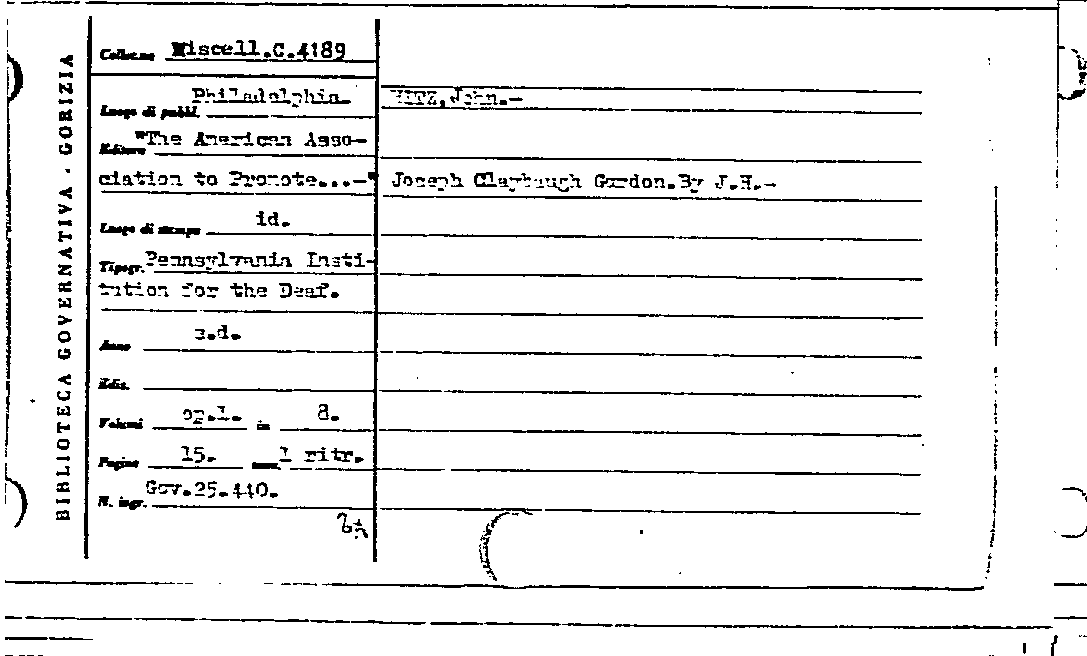 BIBLIOTECA GOVERNATIVA . GORIZIA
Collocne Miscell.C.4189
Luogo di pubbl. Philadelphia.
HITZ,John.—
Editore "The American Asso-
ciation to Promote...—"
Joseph Claybaugh Gordon.By J.H.—
Luogo di stampa id.
Tipogr. Pennsylvania Insti-
tution for the Deaf.
Anno s.d.
Ediz.
Volumi op.1. in 8.
Pagine 15. 1 ritr.
N. ingr. Gov.25.440.